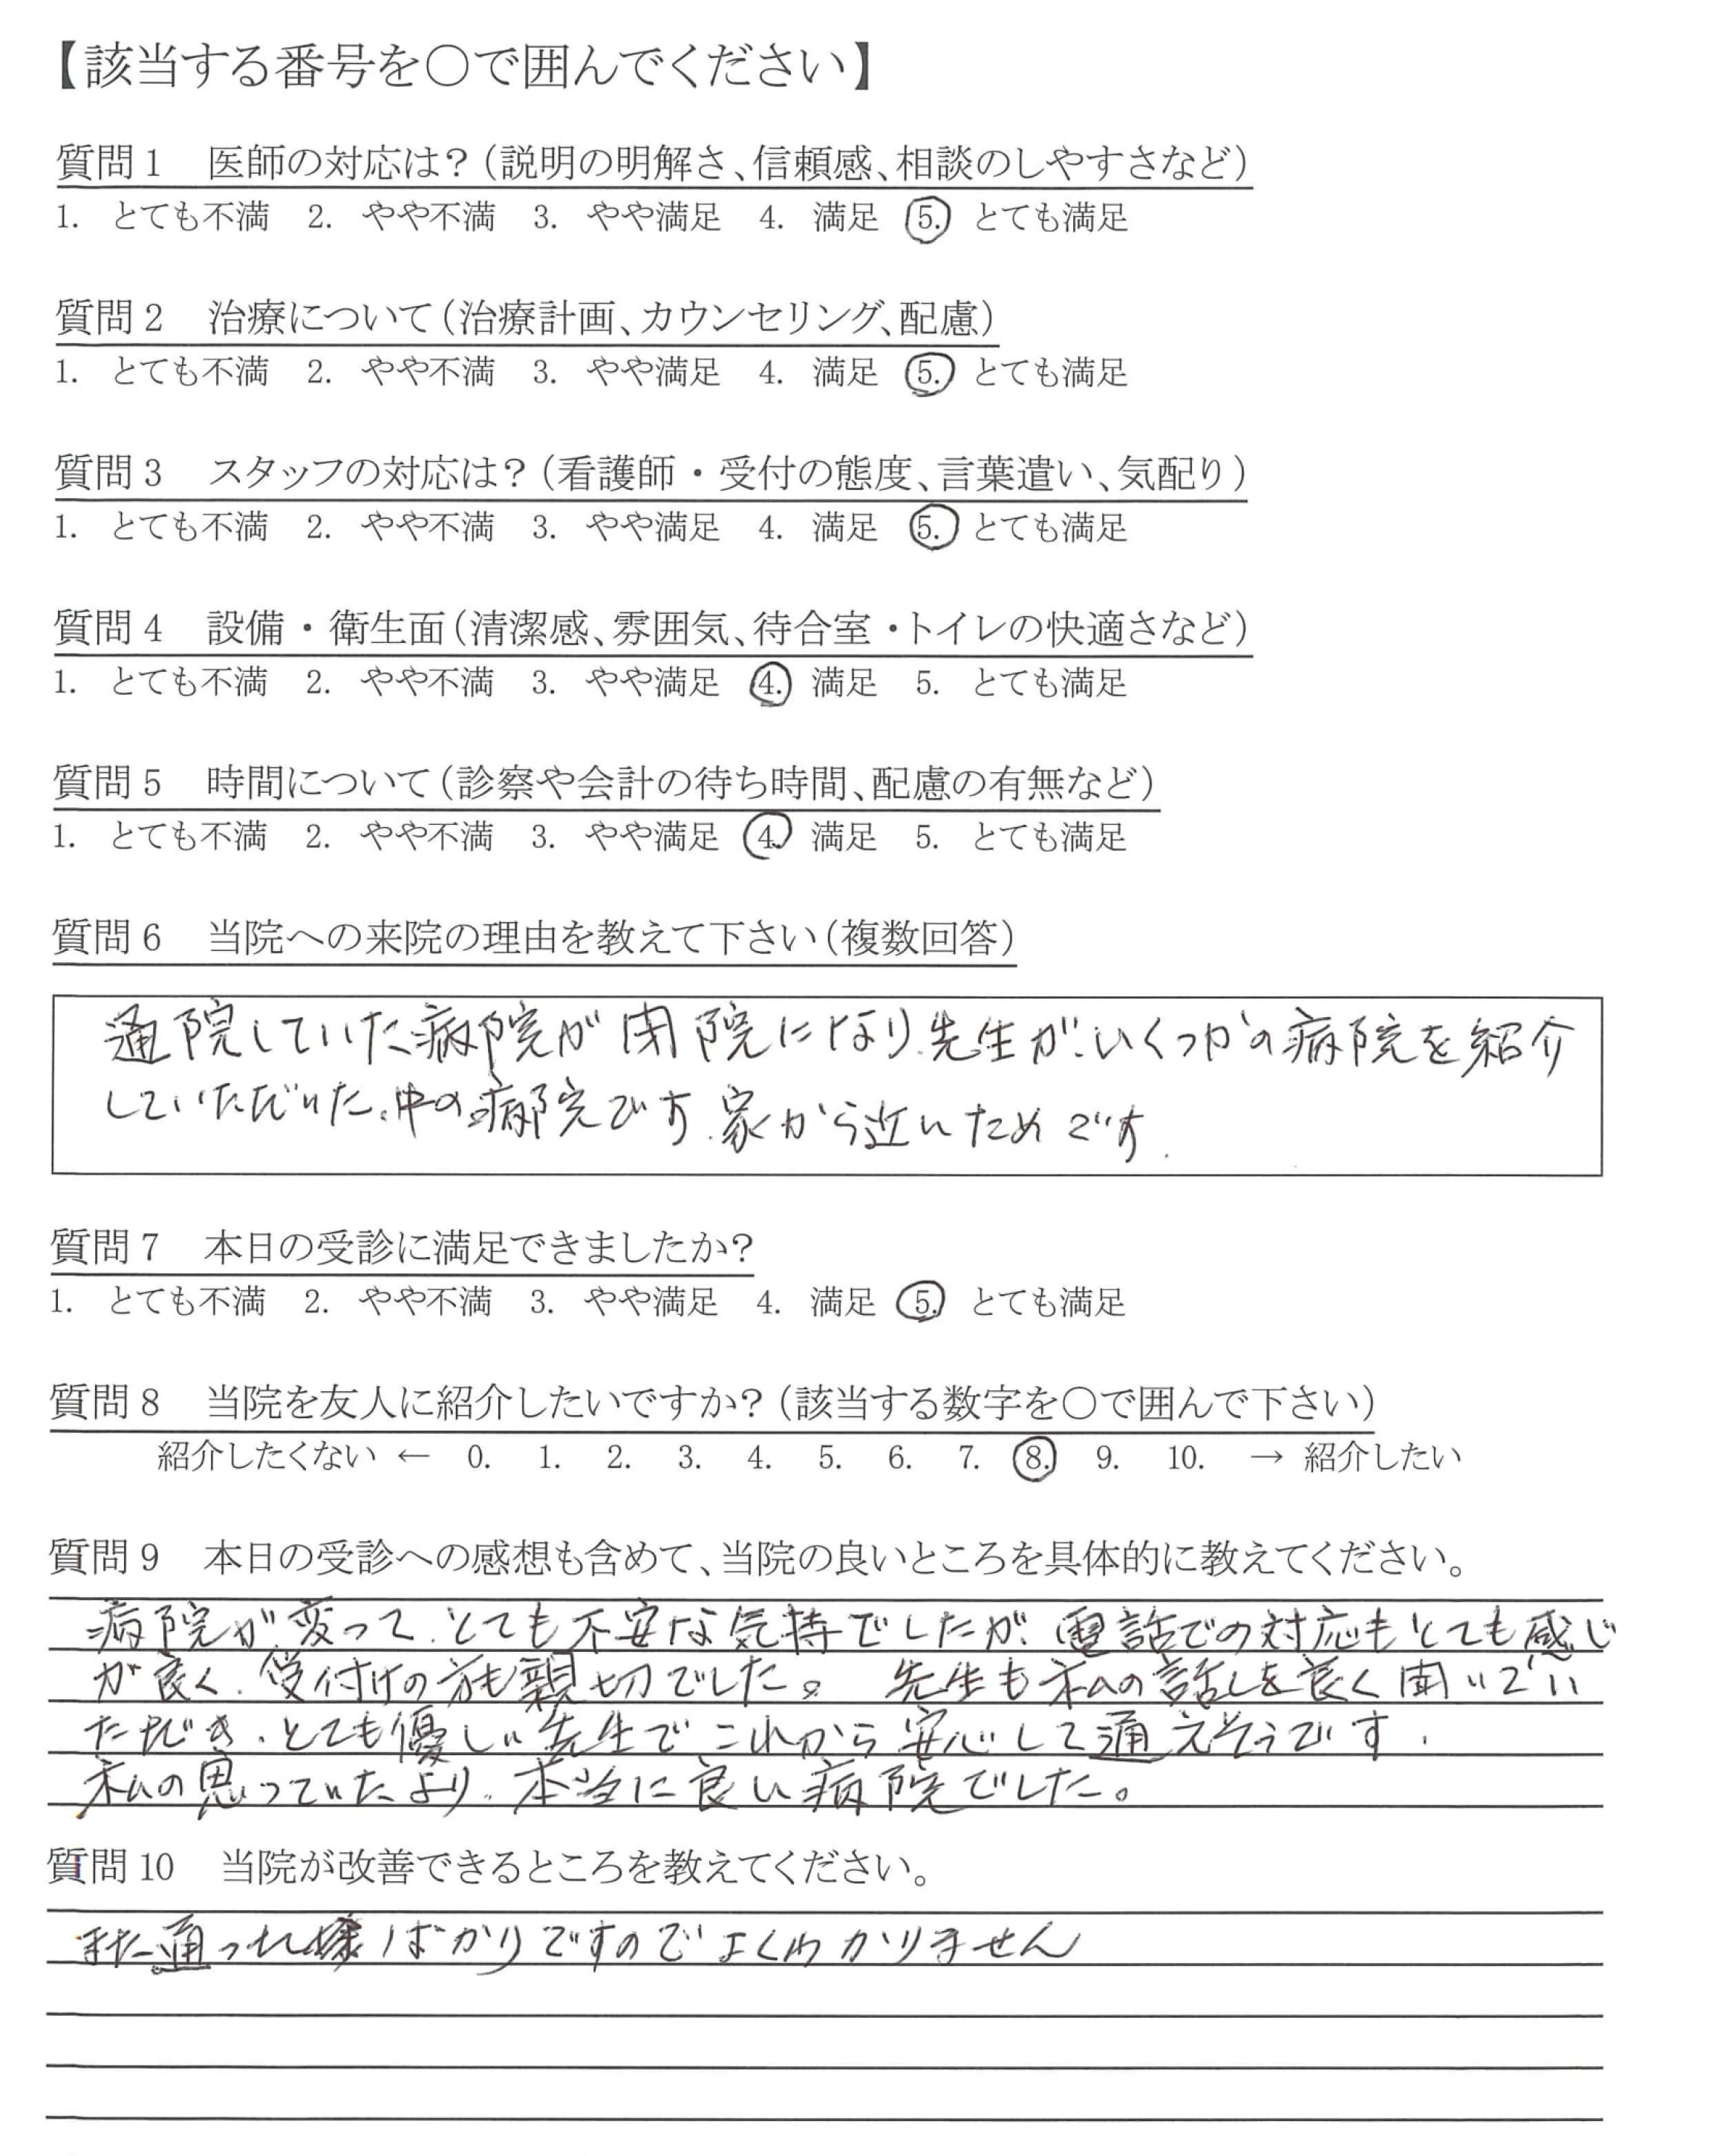 【該当する番号を○で囲んでください】
質問1 医師の対応は?(説明の明解さ、信頼感、相談のしやすさなど)
1. とても不満 2. やや不満 3. やや満足 4. 満足 5. とても満足
質問2 治療について(治療計画、カウンセリング、配慮)
1. とても不満 2. やや不満 3. やや満足 4. 満足 5. とても満足
質問3 スタッフの対応は?(看護師・受付の態度、言葉遣い、気配り)
1. とても不満 2. やや不満 3. やや満足 4. 満足 5. とても満足
質問4 設備・衛生面(清潔感、雰囲気、待合室・トイレの快適さなど)
1. とても不満 2. やや不満 3. やや満足 4. 満足 5. とても満足
質問5 時間について(診察や会計の待ち時間、配慮の有無など)
1. とても不満 2. やや不満 3. やや満足 4. 満足 5. とても満足
質問6 当院への来院の理由を教えて下さい(複数回答)
通院していた病院が閉院になり、先生が、いくつかの病院を紹介
していただいた、中の病院です、家から近いためです.
質問7 本日の受診に満足できましたか?
1. とても不満 2. やや不満 3. やや満足 4. 満足 5. とても満足
質問8 当院を友人に紹介したいですか?(該当する数字を○で囲んで下さい)
紹介したくない ← 0. 1. 2. 3. 4. 5. 6. 7. 8. 9. 10. → 紹介したい
質問9 本日の受診への感想も含めて、当院の良いところを具体的に教えてください。
病院が変って、とても不安な気持でしたが、電話での対応もとても感じ
が良く、受付けの方も親切でした。 先生も私の話しを良く聞いてい
ただき、とても優しい先生でこれから安心して通えそうです.
私の思っていたより、本当に良い病院でした。
質問10 当院が改善できるところを教えてください。
まだ通っればかりですのでよくわかりません